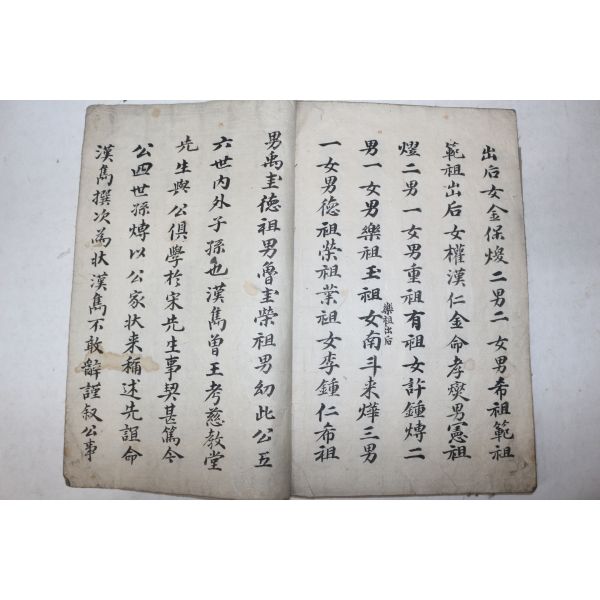 出后女金保㷞二男二女男希祖範祖
範祖出后女權漢仁金命孝㷡男憲祖
熤二男一女男重祖有祖女許鍾煿二
男一女男樂祖玉祖女南斗来燁三男
樂祖出后
一女男德祖榮祖業祖女李鍾仁希祖
男禹圭德祖男魯圭榮祖男幼此公五
六世内外子孫也漢雋曾王考慈敎堂
先生與公俱學於宋先生事契甚篤今
公四世孫煿以公家状来稱述先誼命
漢雋撰次為状漢雋不敢辭謹叙公事